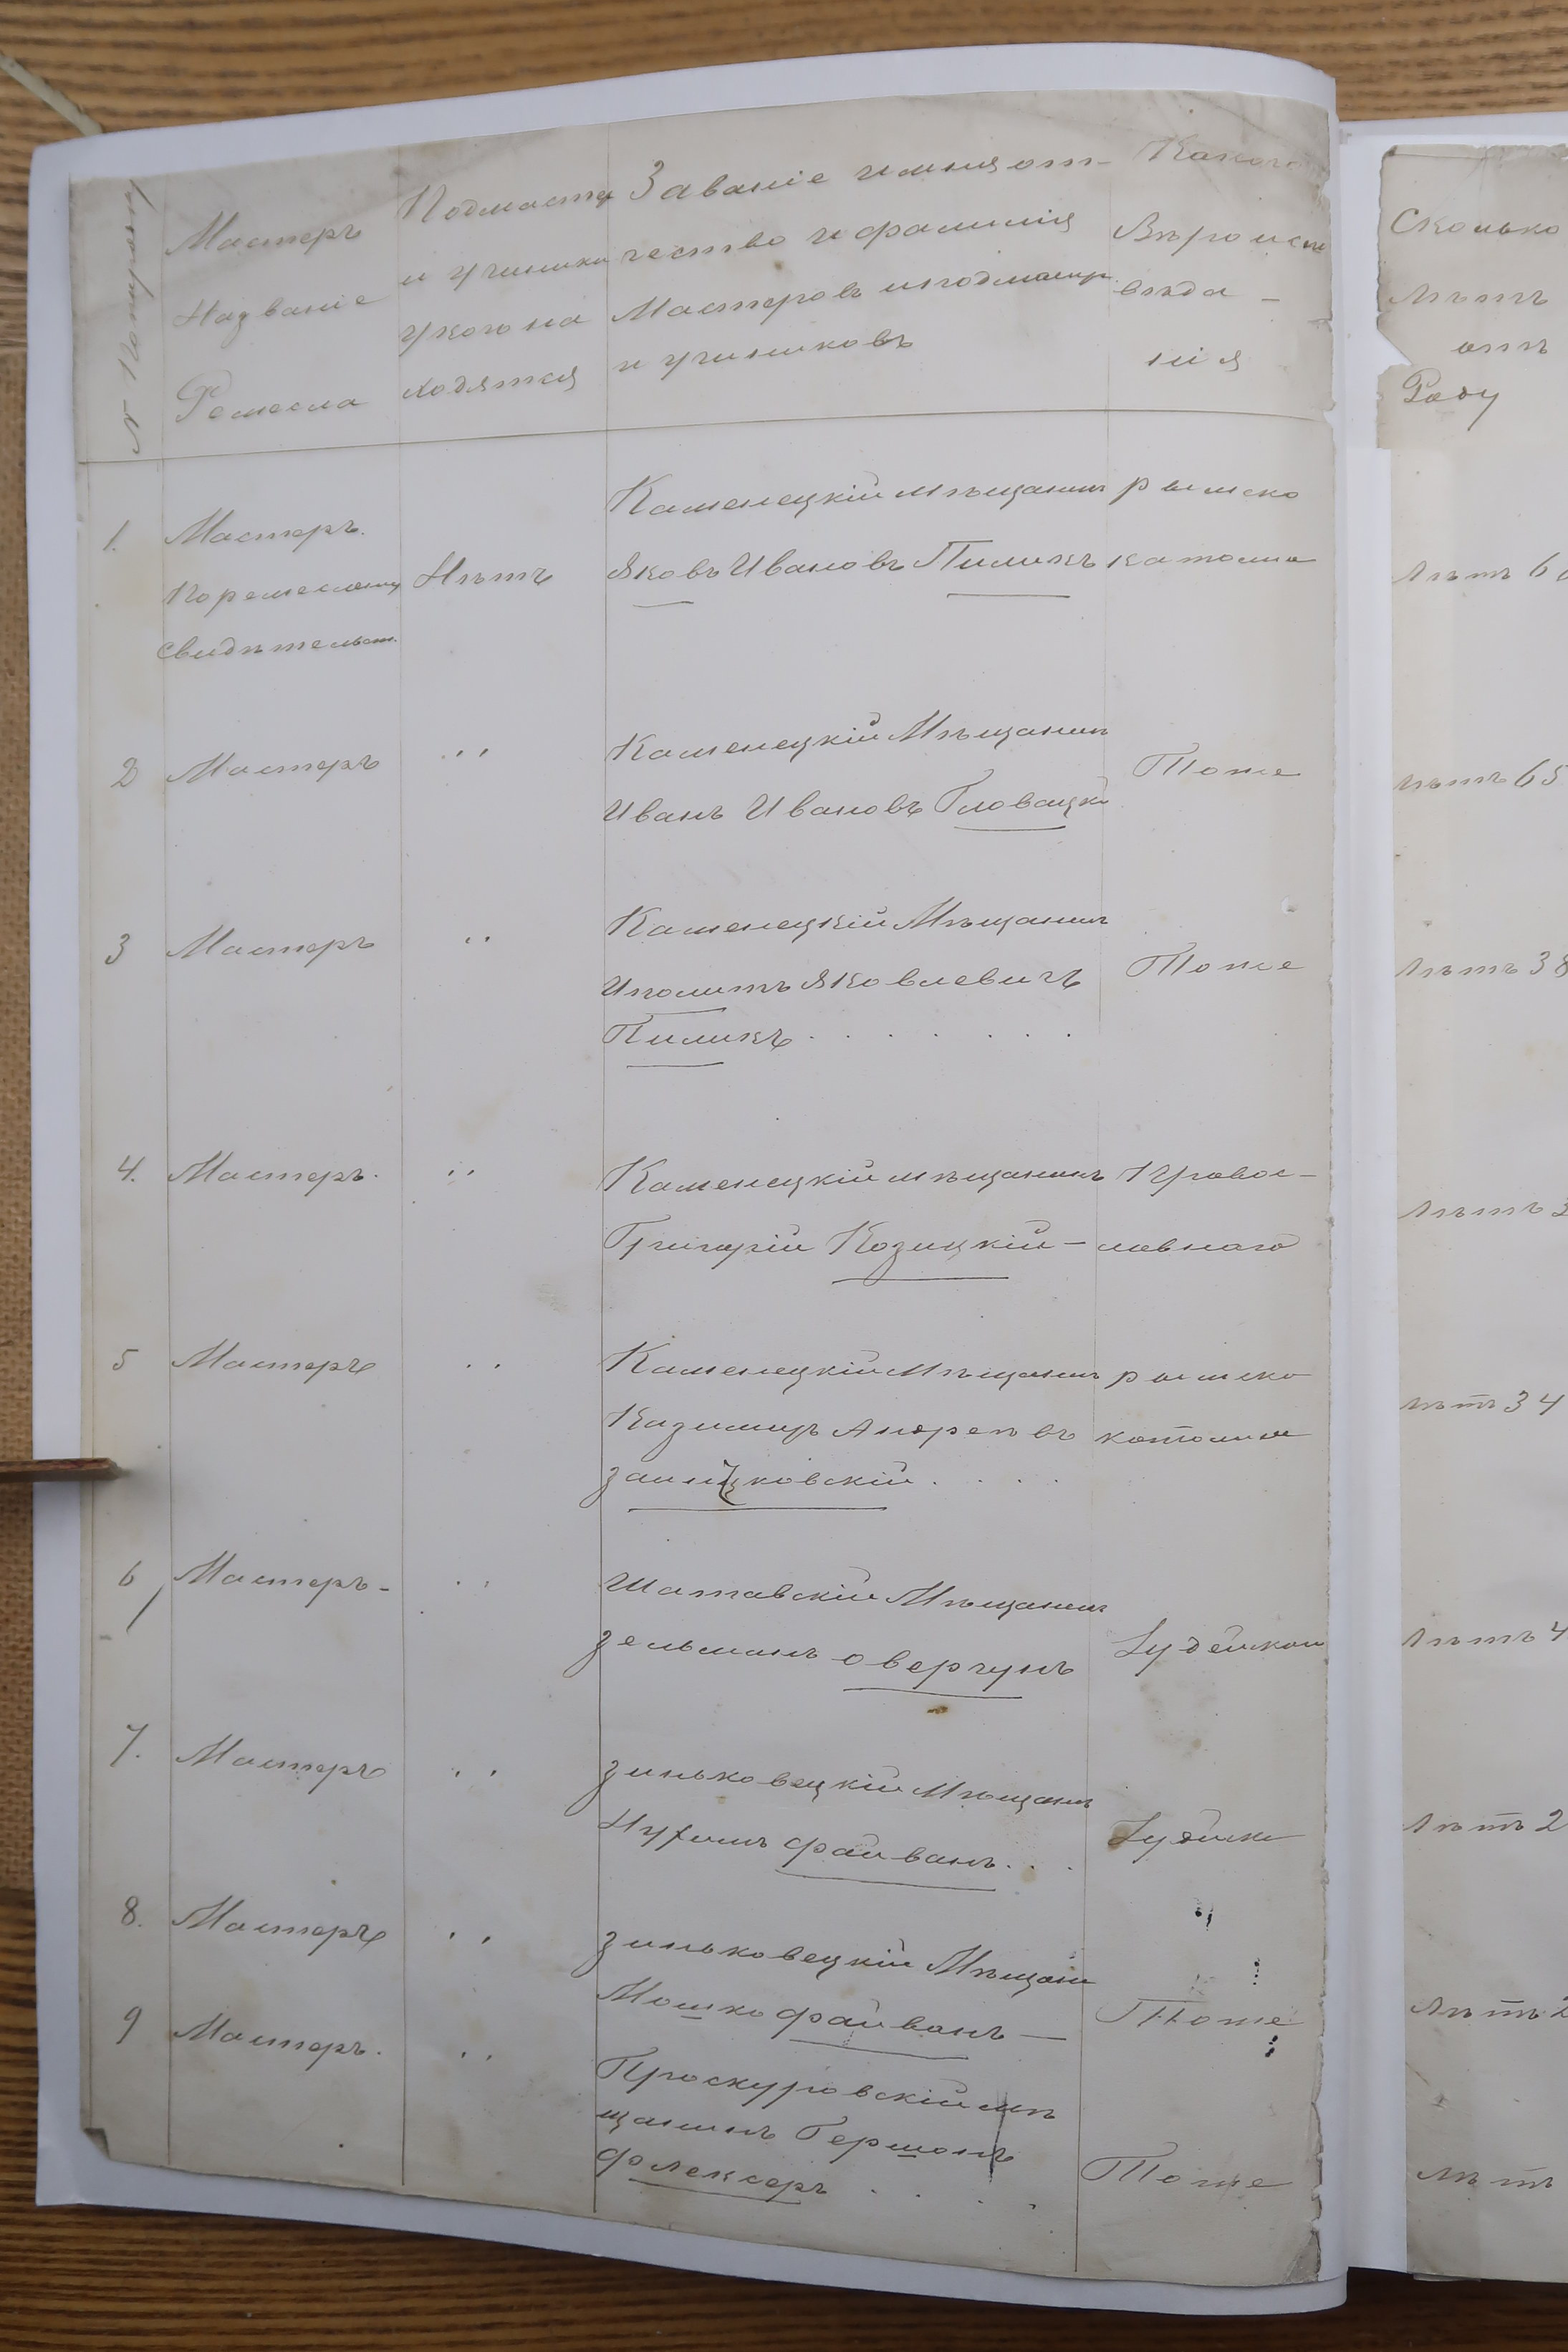 № Попорядку
Мастеръ
Названіе
Ремесла
Подмастер
и ученики
у кого на
ходятся
Заваніе имия от-
чество и фамилия
Мастеровъ и подмастр
и учениковъ
Какого
Вероиспо
веда-
нія
Сколько
Летъ
отъ
Роду
1. Мастеръ.
По ремеслену
свидетельст.
Нѣтъ
Каменецкій мѣщанинъ
Яковъ Ивановъ Пиликъ
римско
католи
Лѣтъ 6
2 Мастеръ
״
Каменецкій Мѣщанинъ
Иванъ Ивановъ Гловацки
Тоже
лѣтъ 65
3 Мастеръ
״
Каменецкій Мѣщанинъ
Иполитъ Яковлевичъ
Пиликъ . . . . . .
Тоже
Лѣтъ 38
4. Мастеръ.
״
Каменецкій мѣщанинъ
Григорій Козицкій —
Правос-
лавнаго
Лѣтъ 3
5 Мастеръ
״
Каменецкій Мѣщанинъ
Казимиръ Андреевъ
ковскій . . . .
римско
католи
лѣтъ 34
6 Мастеръ-
״
Шатавскій Мѣщанинъ
Зельманъ Оверчукъ
Іудейскаи
Лѣтъ 4
7. Мастеръ
״
Зиньковецкій Мѣщанинъ
Нухимъ Файванъ . . .
Іудейски
Лѣтъ 2
8. Мастеръ
״
Зиньковецкій Мѣщани
Мошко Файванъ —
Тоже
Лѣтъ 2
9 Мастеръ.
״
Проскуровскій мѣ
щанинъ Гершонъ
Флексеръ . . . .
Тоже
Лѣтъ